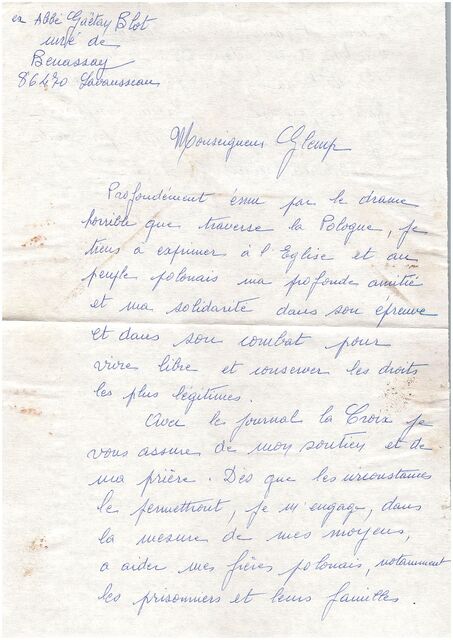 ex Abbé Gaëtan Blot
curé de
Benassay
86470 Lavausseau
Monseigneur Glemp
Profondément ému par le drame
horrible que traverse la Pologne, je
tiens à exprimer à l'Eglise et au
peuple polonais ma profonde amitié
et ma solidarité dans son épreuve
et dans son combat pour
vivre libre et conserver les droits
les plus légitimes.
Avec le journal la Croix je
vous assure de mon soutien et de
ma prière. Dès que les circonstances
le permettront, je m'engage, dans
la mesure de mes moyens,
à aider mes frères polonais, notamment
les prisonniers et leurs familles